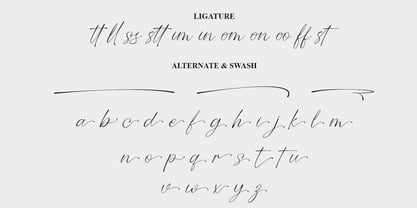 LIGATURE
tt ll ss stt im in om on oo ff st
ALTERNATE & SWASH
a b c d e f g h i j k l m
n o p q r s t t u
v w x y z